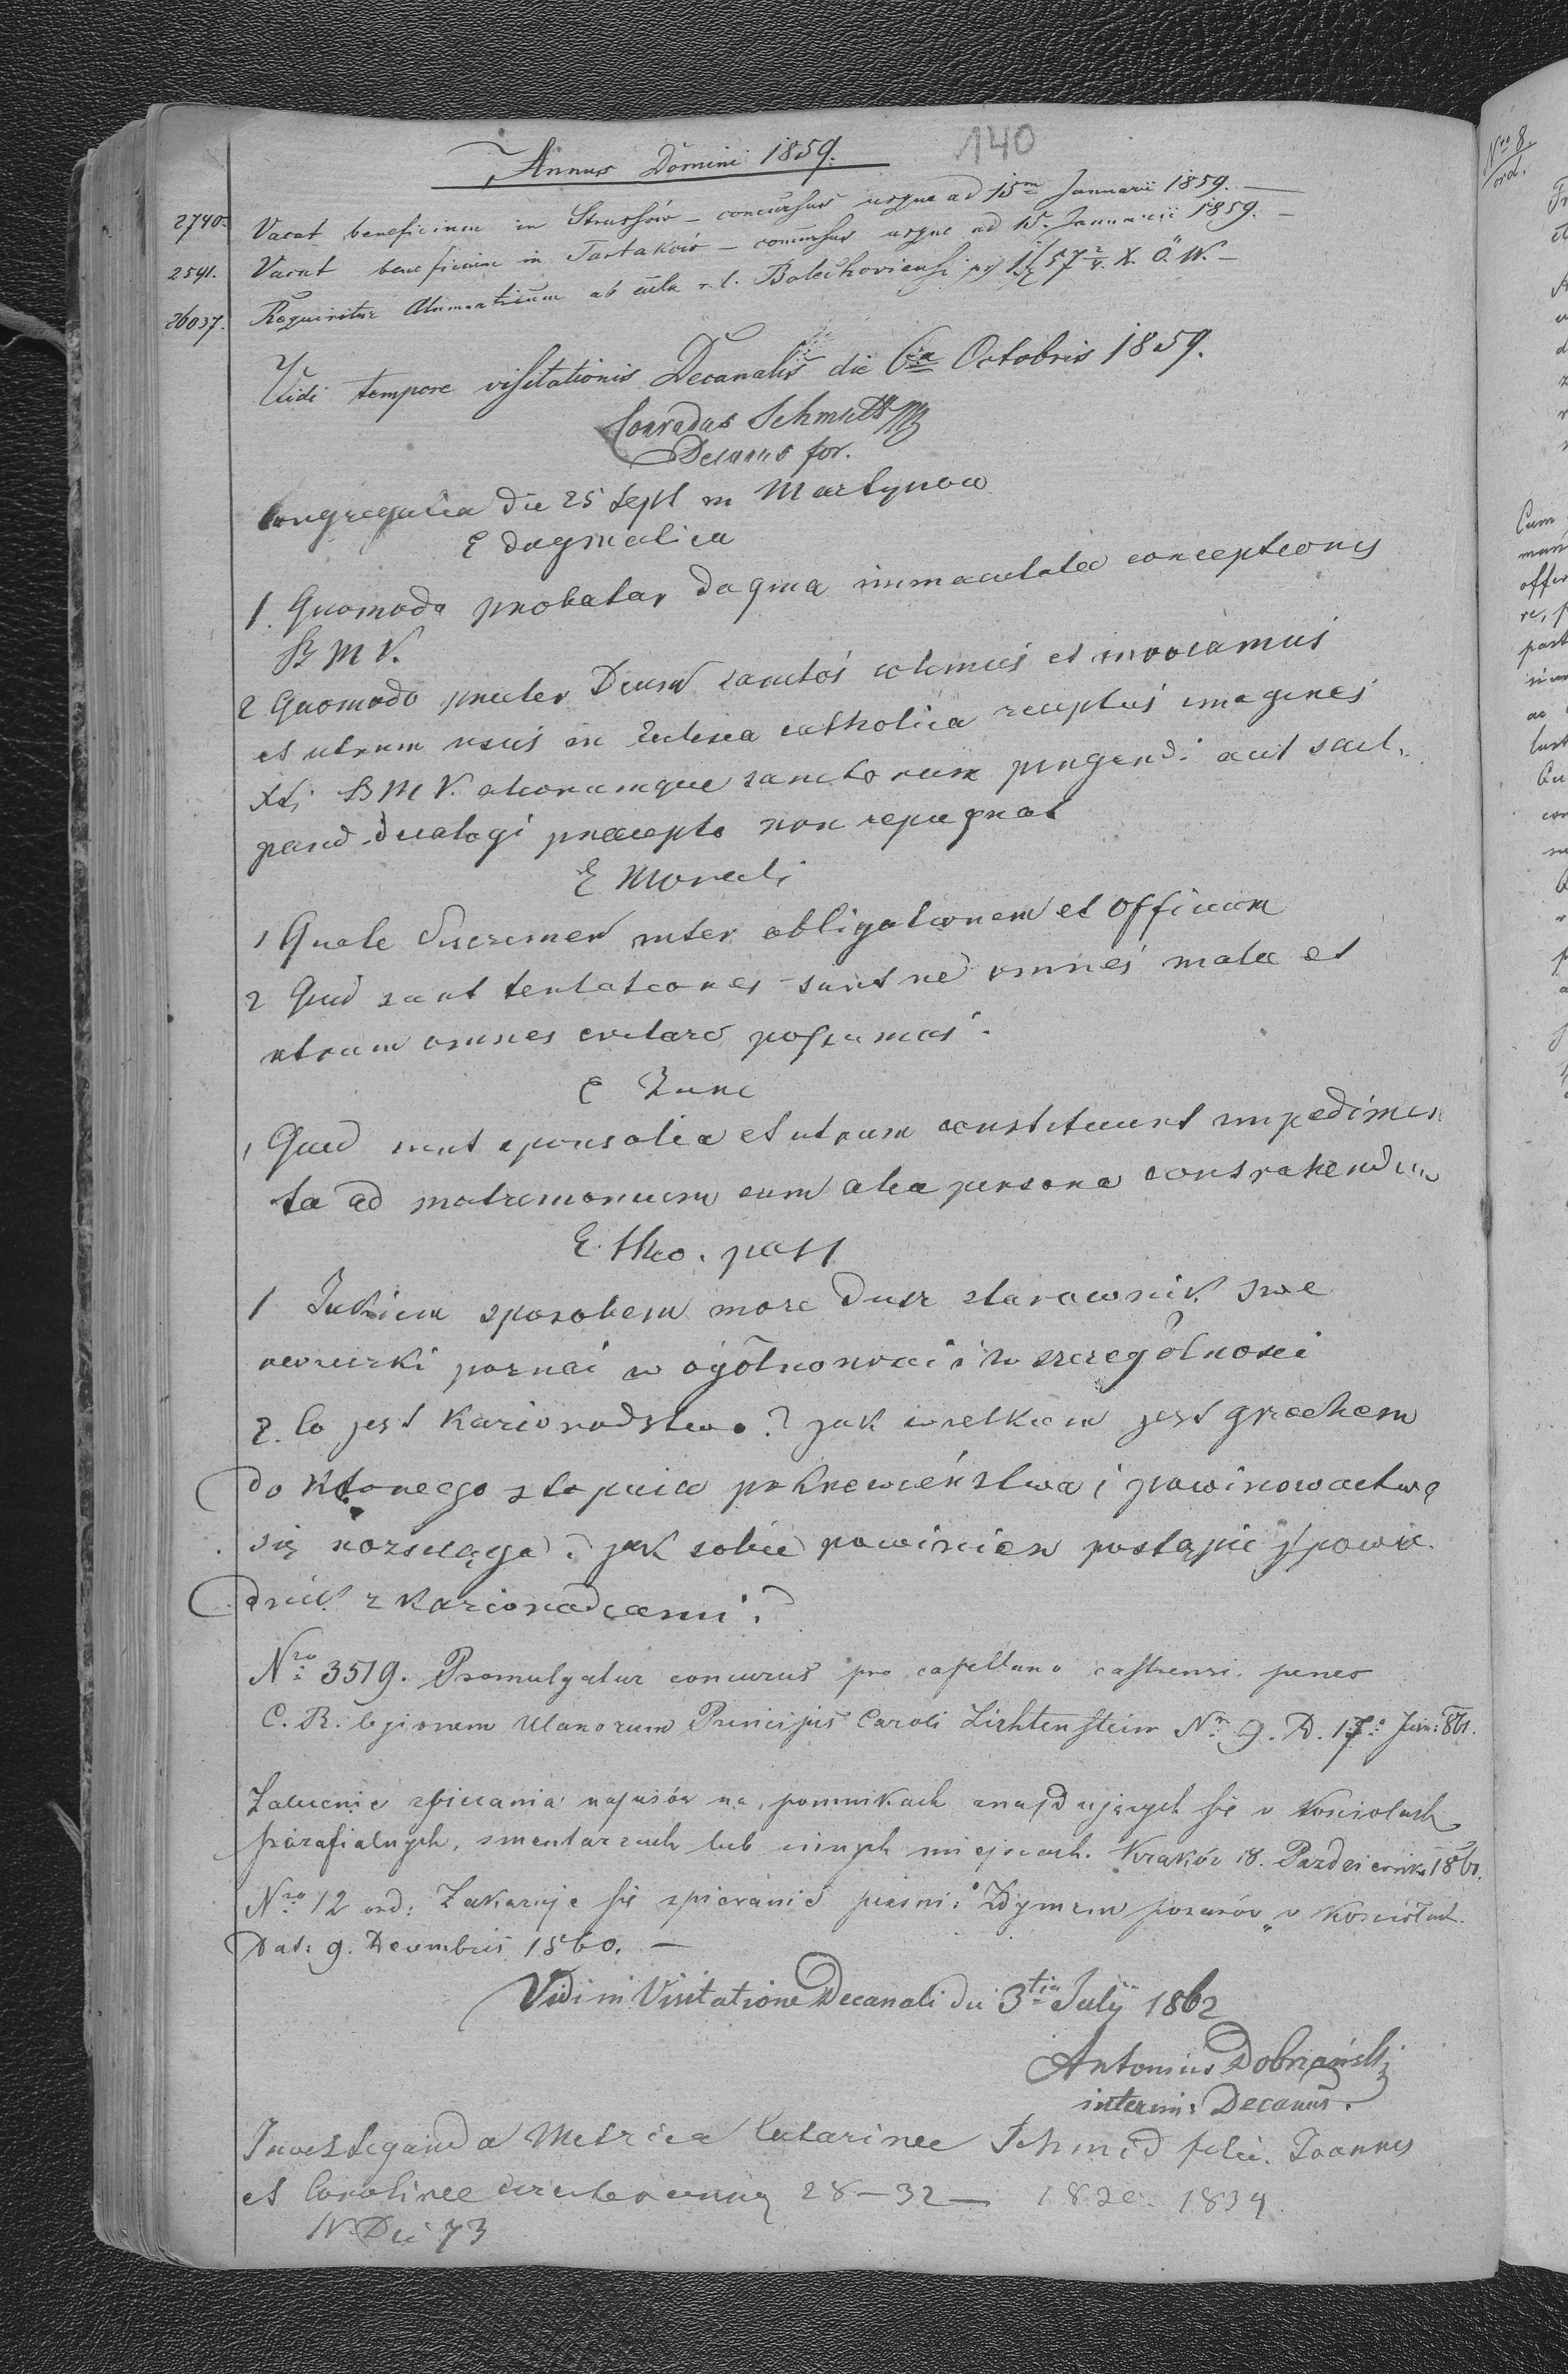 140
Annus Domini 1859.
2740. Vacat beneficium in Strussów – concursus usque ad 15m Januarii 1859. —
2591. Vacat beneficium in Tartaków – concursus usque ad 15. Januarii 1859. —
26037. Requiritur ab r. l. Bolechoviensi 57 2/4. X. Ö. W. —
Vidi tempore visitationis Decanalis die 6ta Octobris 1859.
Conradus Schmidt
Decanus for.
Congregatio die 25 Sept in Martynow
E dogmatica
1. Quomodo probatur dogma immaculatae conceptionis
B M V.
2 Quomodo praeter Deum sanctos colimus et invocamus
et utrum usus in Eclesia catholica receptus imagines
Xti B M V. aliorumque sanctorum pingendi aut scul-
pend. decalogi praecepto non repugnat
E Morali
1 Quale discrimen inter obligationem et officium
2 Quid sunt tentationes – suntne omnes malae et
utrum omnes evitare possumus.
E Iure
1 Quid sunt sponsalia et utrum constituunt impedimen
ta ad matrimonium cum alia persona contrahendum
E. theo. past
1 Jakiem sposobem może dusz starownik swe
owieczki poznać w ogólności i w szczególności
2. Co jest Kazirodstwo? jak wielkiem jest grzechem
do którego stopnia pokrewieństwa i powinowactwa
się rozsciąga? jak sobie powinien postąpić spowie
dnik z kazirodcami?
Nro 3519. Promulgatur concurus pro capellano castrensi penes
C. R. legionem Ulanorum Principis Caroli Lichtenstein Nr. 9. D. 17. Jun: 861.
Zalecenie zbierania napisów na pomnikach znajdujących się w Kościołach
parafialnych, smentarzach lub innych miejscach. Kraków 18. Pazdziernika 1860.
Nro 12 ord: Zakazuje się spiewanie piesni: "Z dymem pozarów" w Kościołach.
Dat: 9. Decembris 1860. —
Vidi in Visitatione Decanali die 3tia July 1862
Antonius Dobrzański
interim: Decanus.
Investiganda Metrica Catarinae Schmid filia Joannes
et Carolinae 28 – 32 — 1834.
N. Dii 73
Nro 8
ord.
Cum